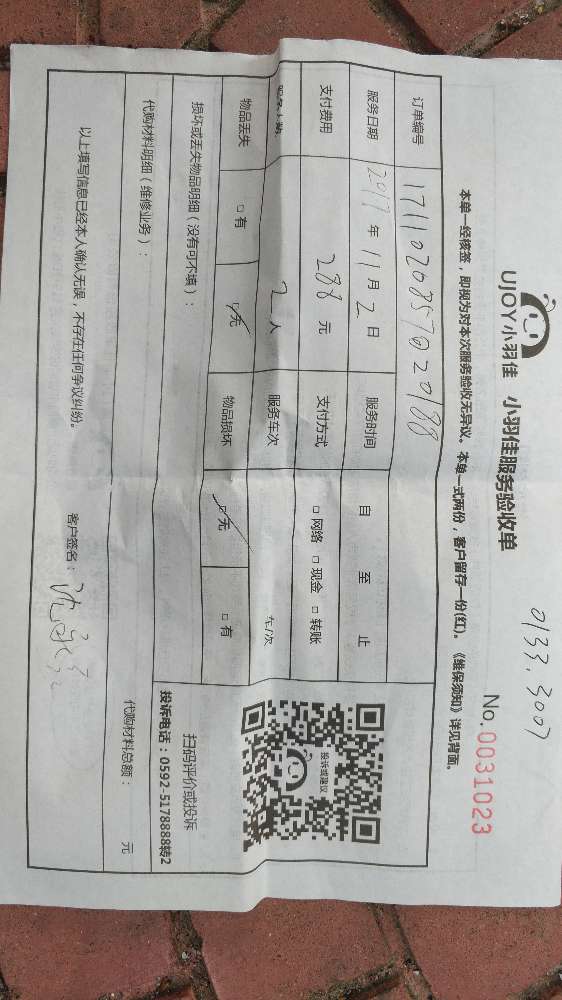 0133.3007
UJOY小羽佳 小羽佳服务验收单
No.0031023
本单一经核签，即视为对本次服务验收无异议。本单一式两份，客户留存一份(红)。《维保须知》详见背面。
订单编号
服务日期 2017年11月2日 服务时间 自 至 止
支付费用 288元 支付方式 □网络 □现金 □转账
2人 服务车次 车/次
物品丢失 □有 □无 物品损坏 □无 □有
损坏或丢失物品明细（没有可不填）：
代购材料明细（维修业务）：
代购材料总额： 元
以上填写信息已经本人确认无误，不存在任何争议纠纷。
客户签名：
投诉或建议
扫码评价或投诉
投诉电话：0592-5178888转2